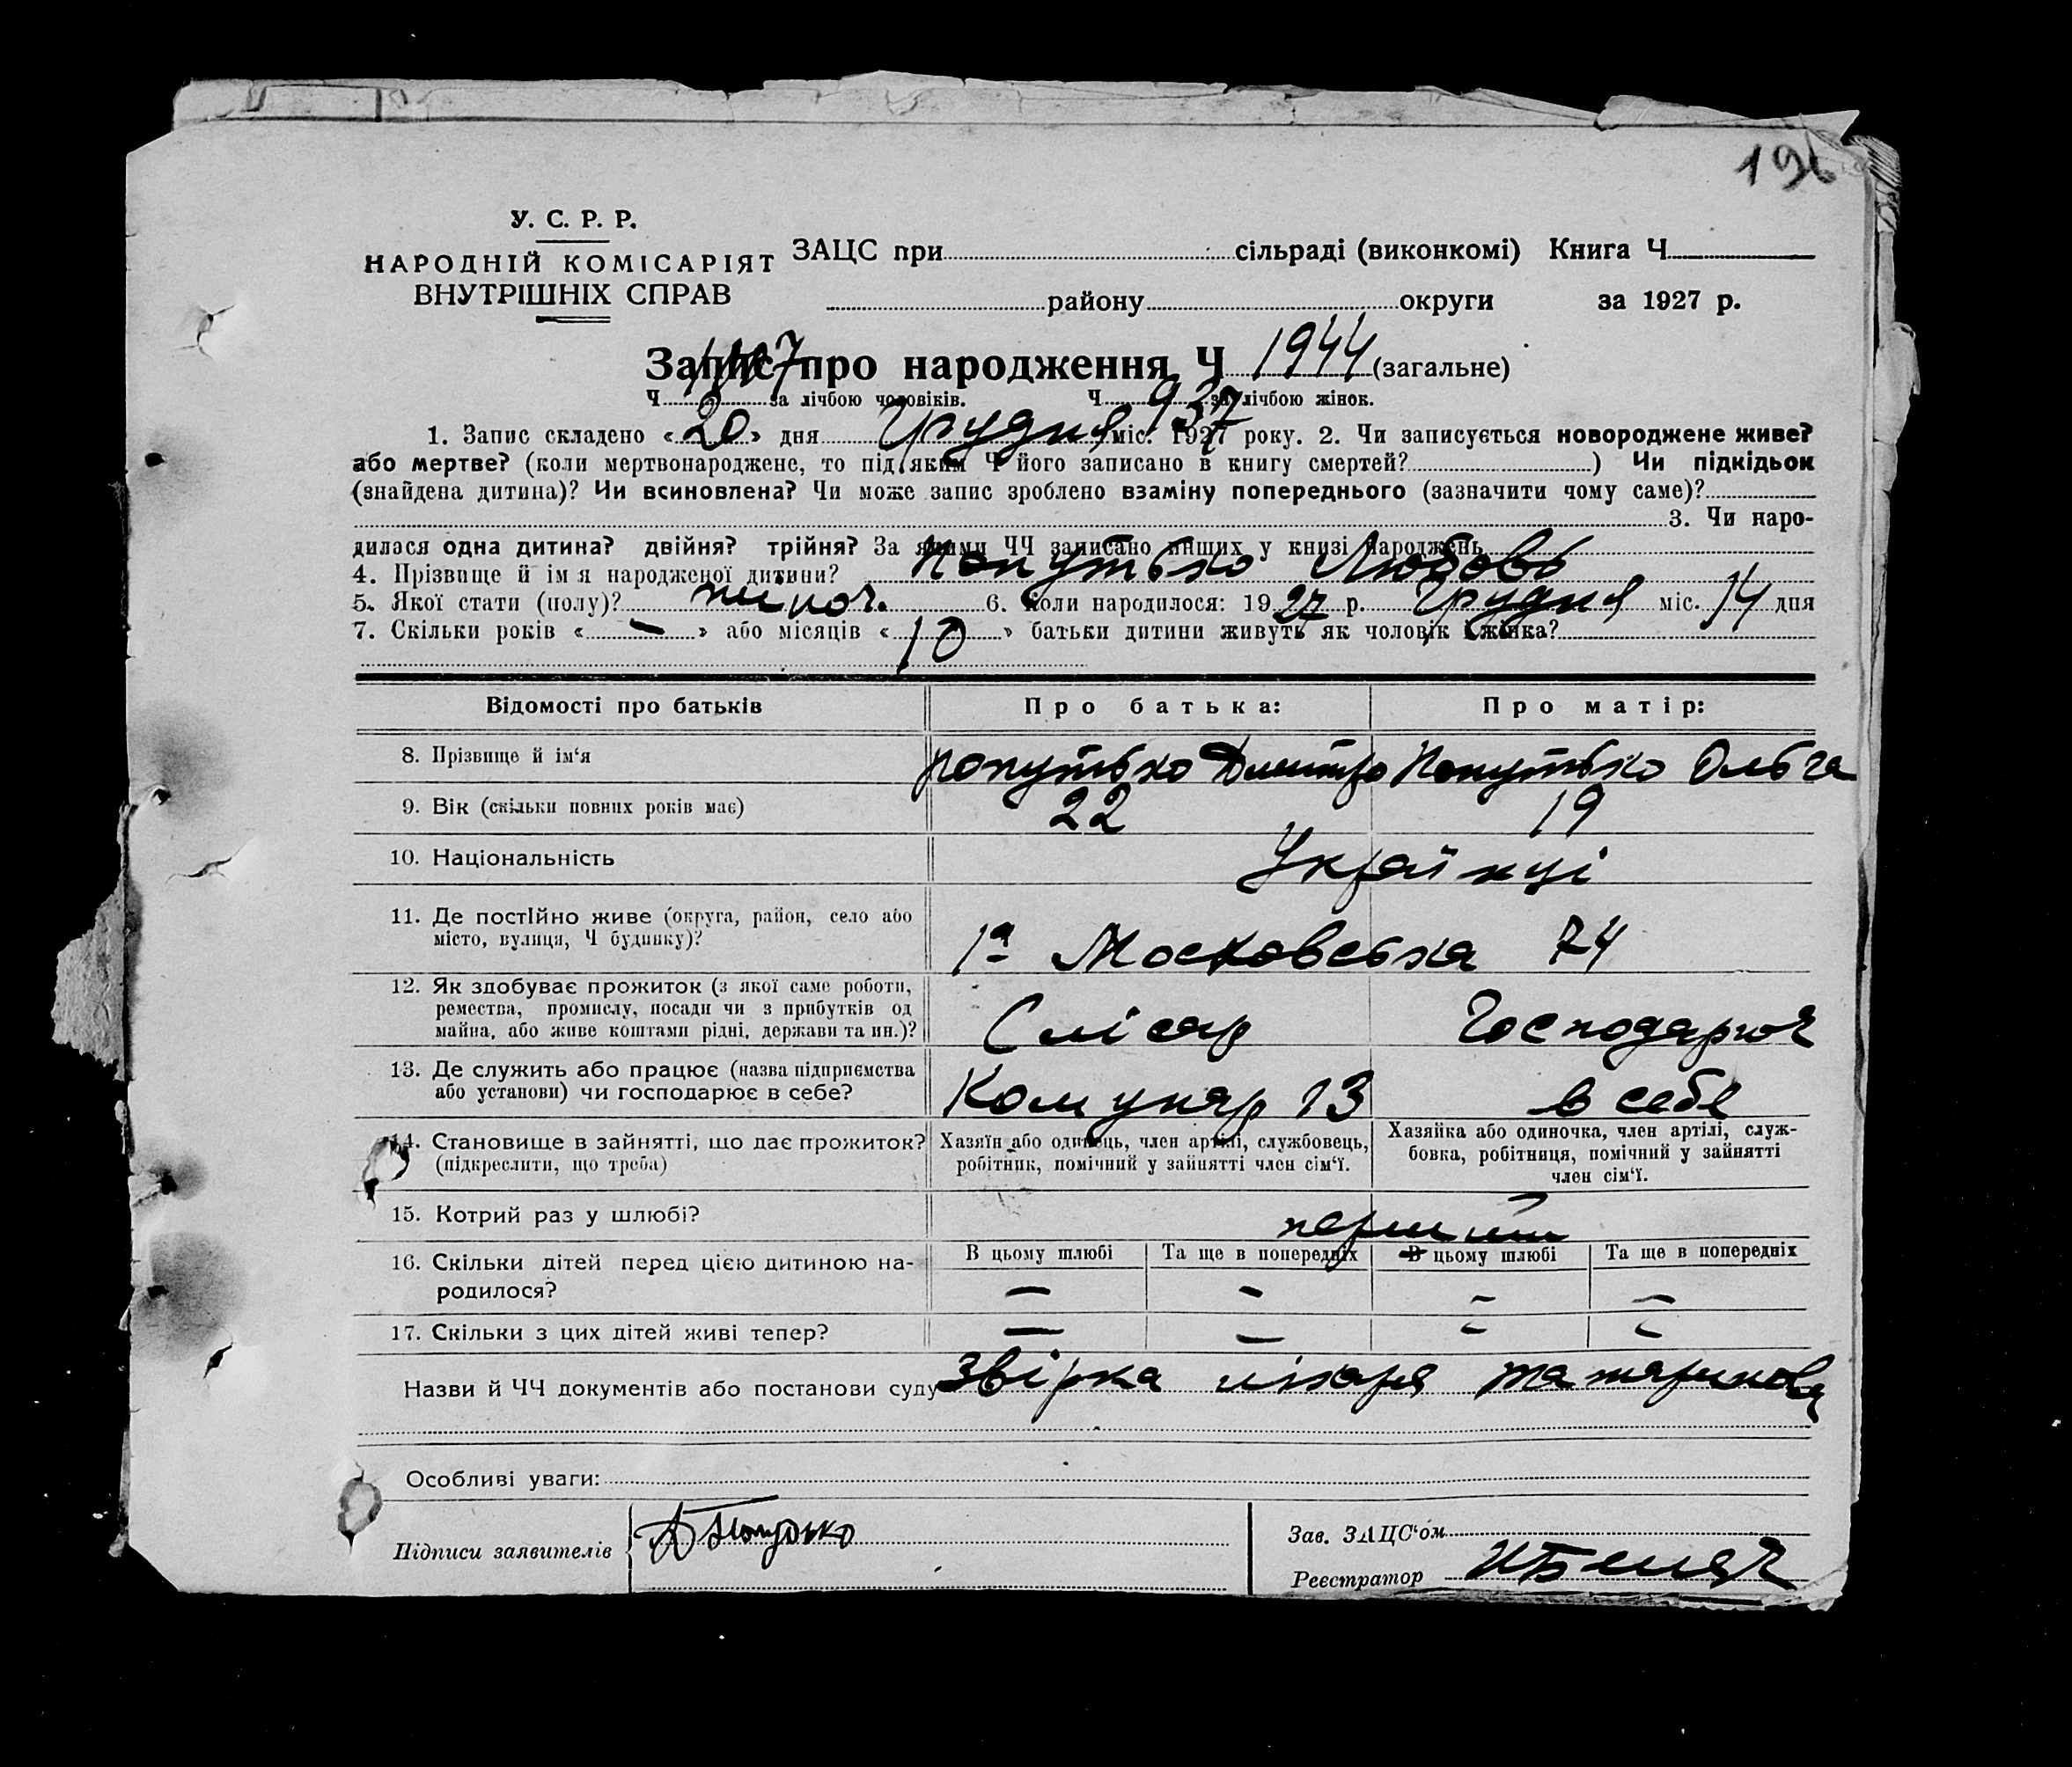 196
У. С. Р. Р.
НАРОДНІЙ КОМІСАРІЯТ
ВНУТРІШНІХ СПРАВ
ЗАЦС при сільраді (виконкомі) Книга Ч
району округи за 1927 р.
Запис про народження Ч 1944 (загальне)
Ч за лічбою чоловіків. Ч 937 за лічбою жінок.
1. Запис складено « 20 » дня Грудня міс. 1927 року. 2. Чи записується новороджене живе?
або мертве? (коли мертвонароджене, то під яким Ч його записано в книгу смертей? ) Чи підкідьок
(знайдена дитина)? Чи всиновлена? Чи може запис зроблено взаміну попереднього (зазначити чому саме)?
3. Чи наро-
дилася одна дитина? двійня? трійня? За якими ЧЧ записано инших у книзі народжень
4. Прізвище й ім я народженої дитини? Попутько Любовь
5. Якої стати (полу)? жіноч. 6. Коли народилося: 1927 р. Грудня міс. 14 дня
7. Скільки років « — » або місяців « 10 » батьки дитини живуть як чоловік і жінка?
Відомості про батьків Про батька: Про матір:
8. Прізвище й ім‘я Попутько Дмитро Попутько Ольга
9. Вік (скільки повних років має) 22 19
10. Національність Українці
11. Де постійно живе (округа, район, село або
місто, вулиця, Ч будинку)? 1а Московська 74
12. Як здобуває прожиток (з якої саме роботи,
ремества, промислу, посади чи з прибутків од
майна, або живе коштами рідні, держави та ин.)? Слісар Господарює
13. Де служить або працює (назва підприємства
або установи) чи господарює в себе? Комунар 13 в себе
14. Становище в зайнятті, що дає прожиток?
(підкреслити, що треба)
Хазяїн або одинець, член артілі, службовець,
робітник, помічний у зайнятті член сім‘ї.
Хазяйка або одиночка, член артілі, служ-
бовка, робітниця, помічний у зайнятті
член сім‘ї.
15. Котрий раз у шлюбі? перший
16. Скільки дітей перед цією дитиною на-
родилося?
В цьому шлюбі Та ще в попередніх В цьому шлюбі Та ще в попередніх
— — — —
17. Скільки з цих дітей живі тепер? — — — —
Назви й ЧЧ документів або постанови суду Звірка лікаря
Особливі уваги:
Підписи заявителів Д Попутько
Зав. ЗАЦС‘ом
Реєстратор